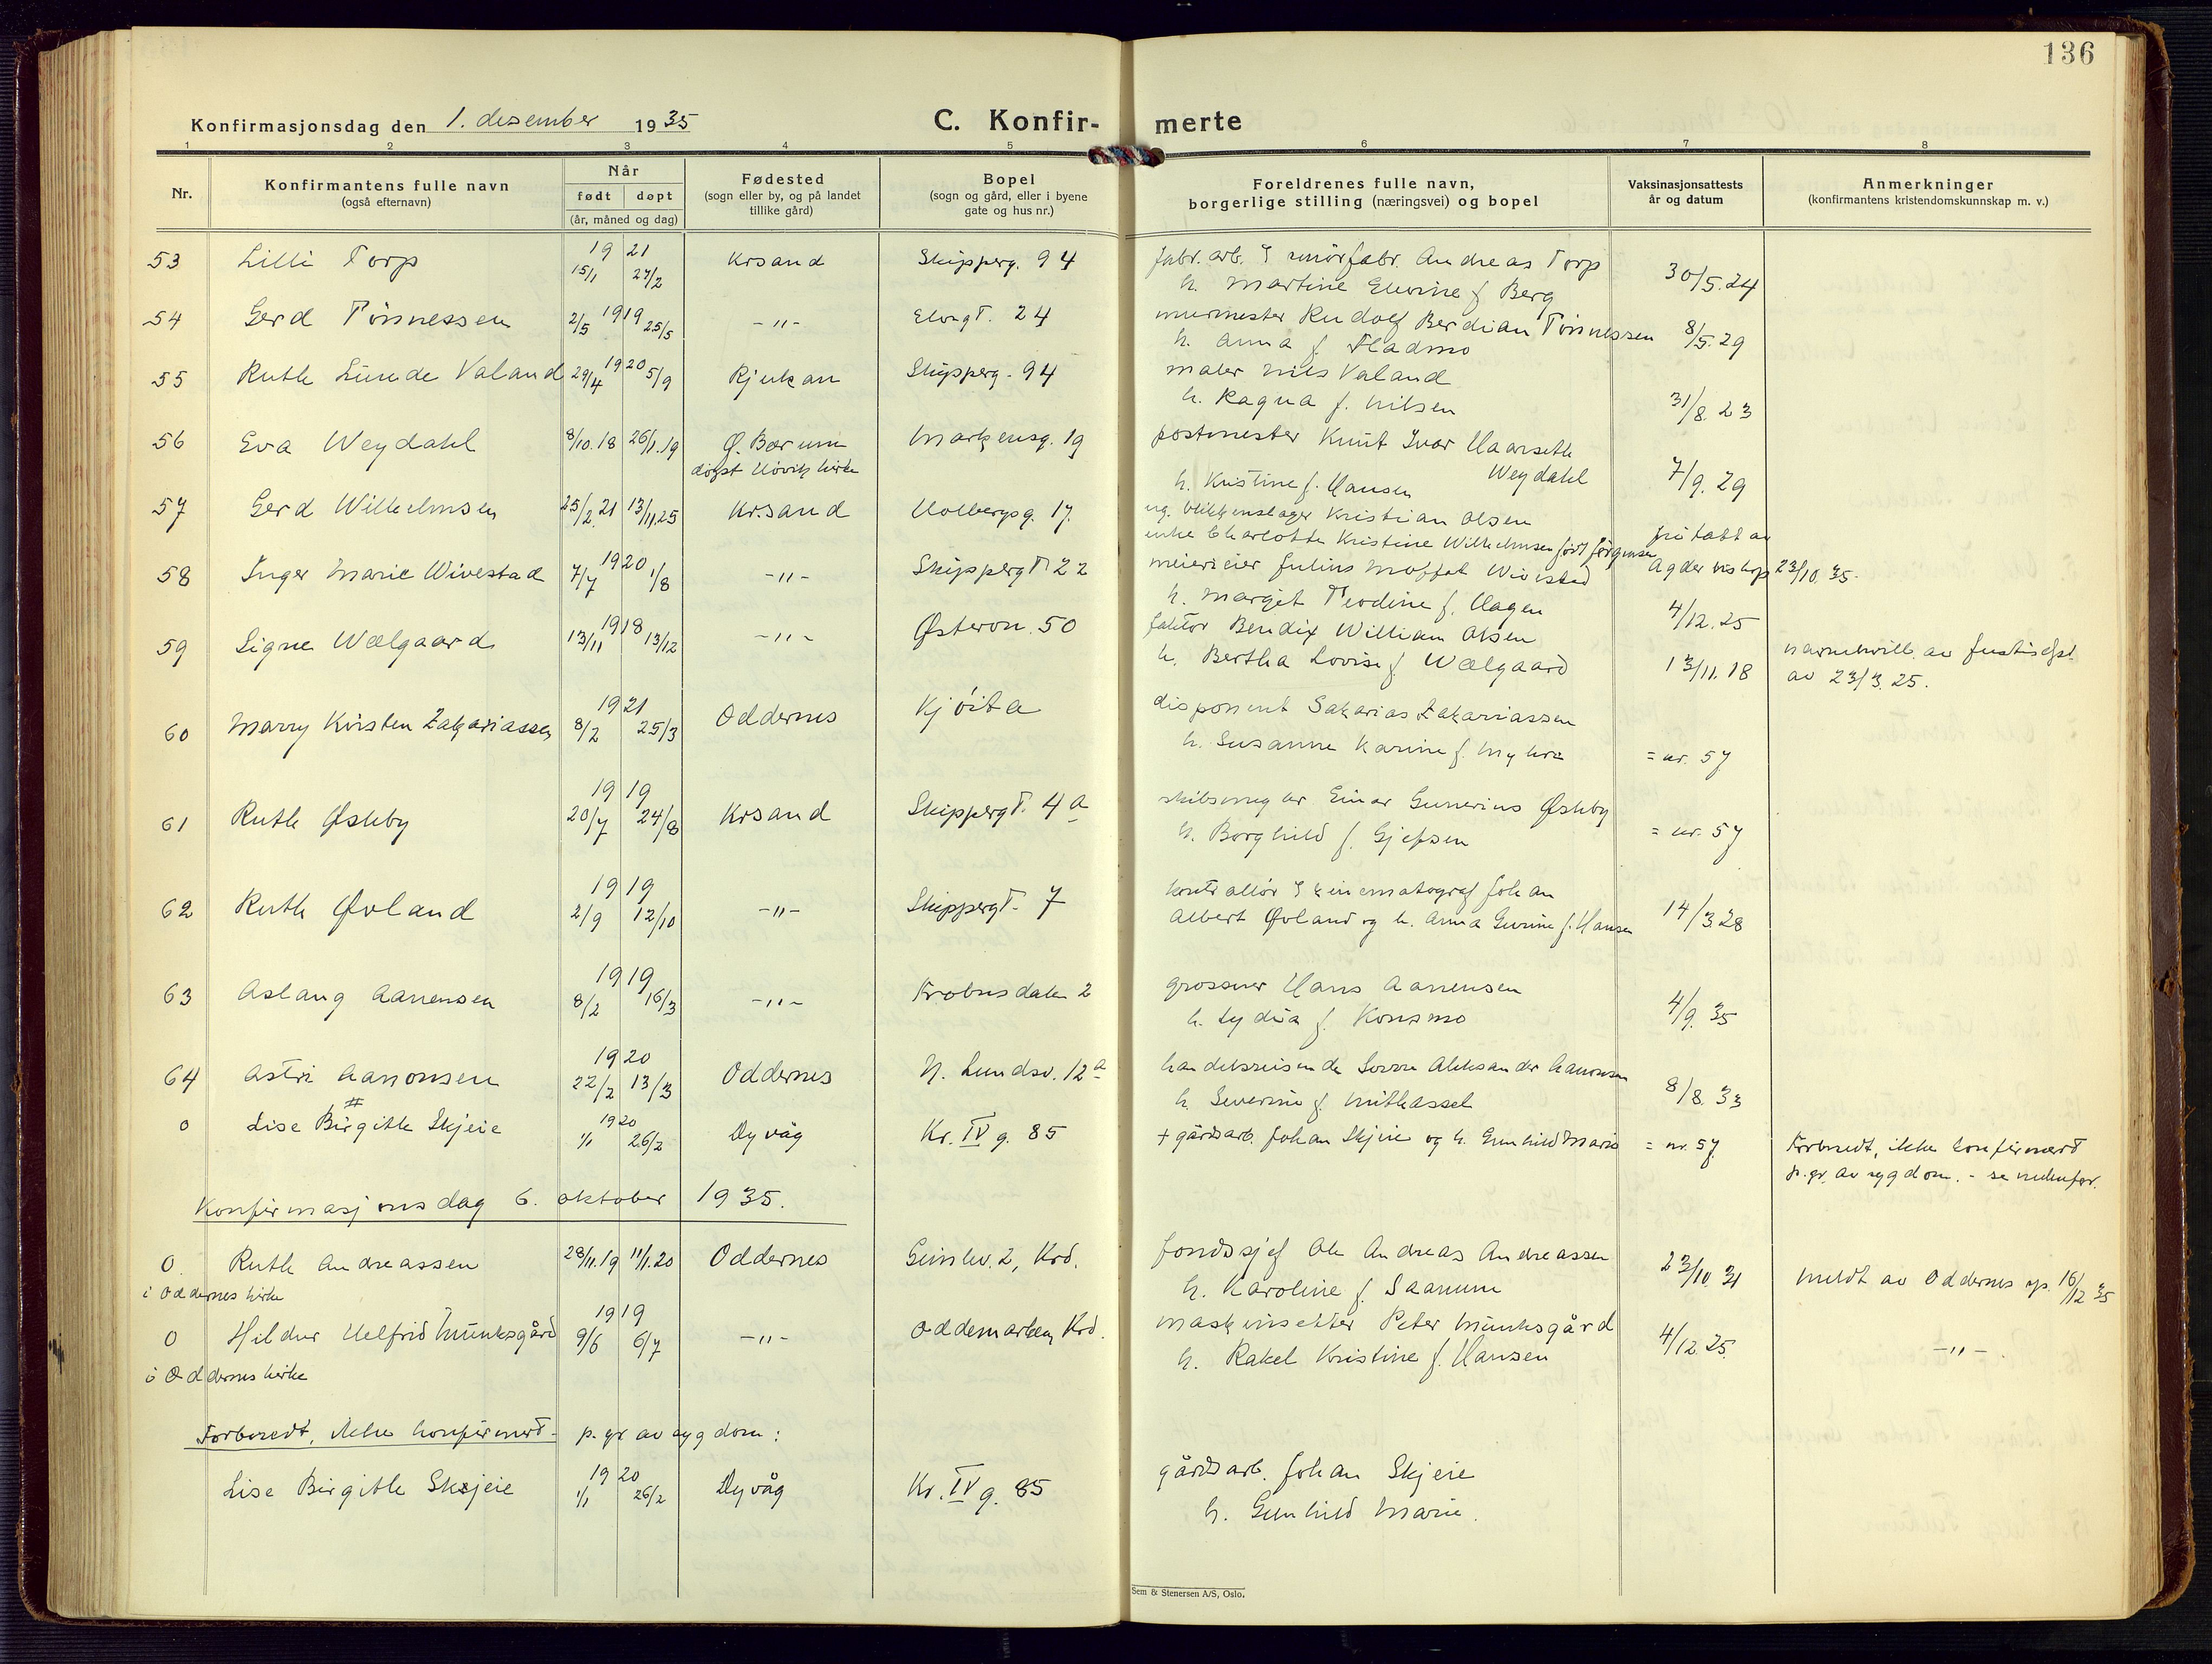 136
Konfirmasjonsdag den 1. desember 1935
C. Konfir- merte
1 2 3 4 5 6 7 8
Nr.
Konfirmantens fulle navn
(også efternavn)
Når
født døpt
(år, måned og dag)
Fødested
(sogn eller by, og på landet
tillike gård)
Bopel
(sogn og gård, eller i byene
gate og hus nr.)
Foreldrenes fulle navn,
borgerlige stilling (næringsvei) og bopel
Vaksinasjonsattests
år og datum
Anmerkninger
(konfirmantens kristendomskunnskap m. v.)
53 Lilli Torp 19 21 15/1 27/2 Krsand Skipperg. 94 fabr. arb. Andreas Torp
h. Martine Elvine f. Berg 30/5.24
54 Gerd Tönnessen 2/5 1919 25/5 -"- Elvegt. 24 murmester Rudolf Berdian Tönnessen
h. Anna f. Fladmo 8/5.29
55 Ruth Lunde Valand 29/4 1920 5/9 Rjukan Skipperg. 94 maler Nils Valand
h. Ragna f. Nilsen 31/8.23
56 Eva Weydahl 8/10.18 26/1.19 Ø. Bærum Markensg. 19 postmester Knut Ivar Haarseth
døpt Høvik kirke Weydahl
h. Kristine f. Hansen 7/9.29
57 Gerd Wilhelmsen 25/2.21 13/11.25 Kr.sand Holbergsg. 17. ug. blikkenslager Kristian Olsen
enke Charlotte Kristine Wilhelmsen født Jörgensen fritatt av
Agder biskop 23/10.35.
58 Inger Marie Wivestad 7/7 1920 1/8 -"- Skippergt. 22 meierieier Julius Moffat Wivestad
h. Margit Teodine f. Hagen 4/12.25
59 Signe Wælgaard 13/11 1918 13/12 -"- Østerv. 50 faktor Bendix William Olsen
h. Bertha Lovise f. Wælgaard 13/11.18 navnebevill. av Justisdpt.
av 23/3.25.
60 Marry Kirsten Zakariassen 1921 8/2 25/3 Oddernes Kjöita disponent Sakarias Zakariassen
h. Susanne Karine f. Myhre = nr. 57
61 Ruth Øsleby 1919 20/7 24/8 Krsand Skippergt. 4a skibsmegler Einar Gunerius Øsleby
h. Borghild f. Gjepsen = nr. 57
62 Ruth Øvland 1919 2/9 12/10 -"- Skippergt. 7 kontrollör kinematograf Johan
Albert Øvland og h. Anna Gurine f. Hansen 14/3.28
63 Aslaug Aanensen 1919 8/2 16/3 -"- Frobusdalen 2 grosserer Hans Aanensen
h. Lydia f. Konsmo 4/9.35
64 Astri Aanonsen 1920 22/2 13/3 Oddernes N. Lundsv. 12a handelsreisende Sverre Aleksander Aanonsen
h. Severine f. Mithassel 8/8.33
0 Lise Birgitte Skjeie 1920 1/1 26/2 Dyvåg Kr. IV g. 85 + gårdsarb. Johan Skjeie og h. Gunhild Marie = nr. 57 Forberedt, ikke konfirmert
p. gr. av sygdom. - se nedenfor.
Konfirmasjonsdag 6. oktober 1935.
0. Ruth Andreassen 28/11.19 11/1.20 Oddernes Geimlev. 2, Krd. fondssjef Ole Andreas Andreassen
i Oddernes kirke h. Karoline f. Saanum 23/10 31 meldt av Oddernes sp. 16/12 35
0 Hildur Helfrid Munksgård 1919 9/6 6/7 -"- Oddemarken, Krd. maskinsetter Peter Munksgård
i Oddernes kirke h. Rakel Kristine f. Hansen 4/12.25. -"-
Forberedt, ikke konfirmert p. gr. av sygdom:
Lise Birgitte Skjeie 1920 1/1 26/2 Dyvåg Kr. IV g. 85 gårdsarb. Johan Skjeie
h. Gunhild Marie.
Sem & Stenersen A/S, Oslo.